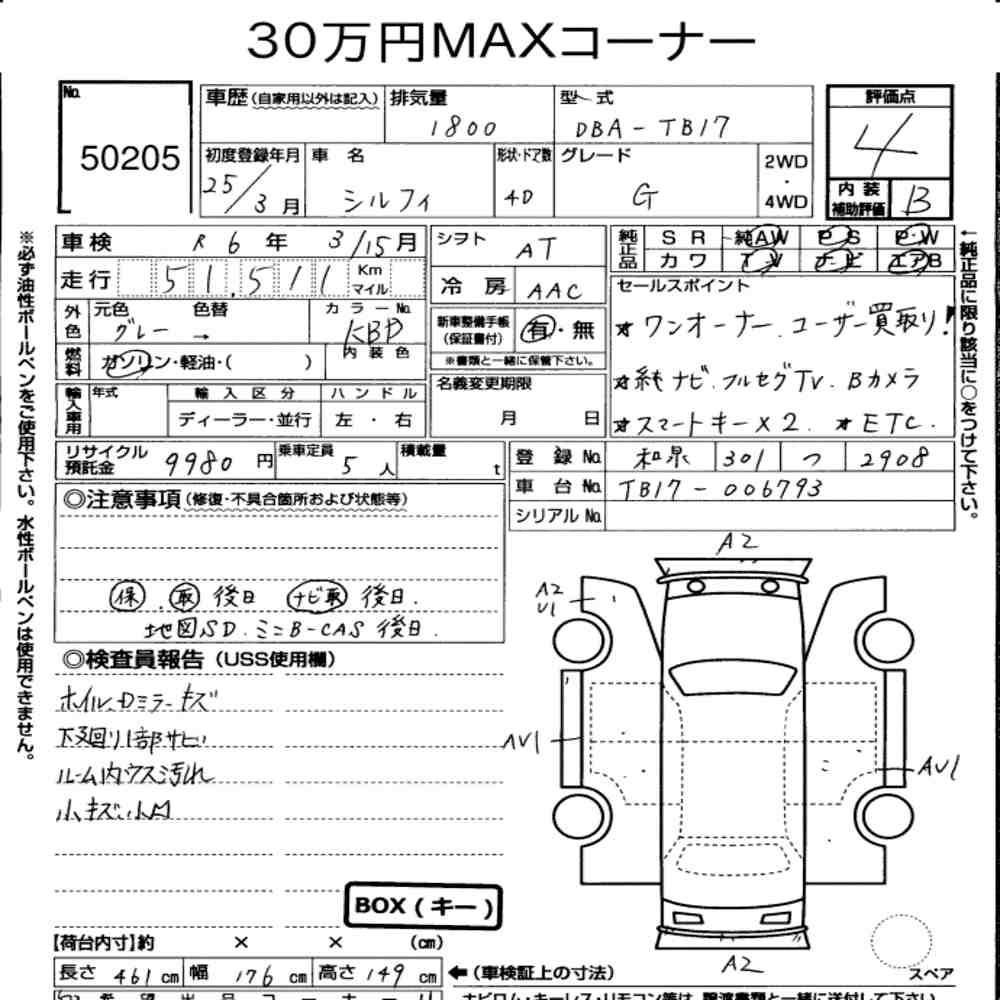 30万円MAXコーナー
No.
50205
車歴(自家用以外は記入)
排気量
1800
型 式
DBA-TB17
評価点
4
初度登録年月
25/3月
車 名
シルフィ
形状・ドア数
4D
グレード
G
2WD
・
4WD
内装補助評価
B
車検 R 6年 3/15月
走行 51,511 Km マイル
外色 元色 グレー 色替 →
カラーNo. KBD
内装色
燃料 ガソリン・軽油・( )
輸入車用 年式 輸入区分 ディーラー・並行
ハンドル 左・右
シフト AT
冷房 AAC
新車整備手帳(保証書付) 有・無
※書類と一緒に保管下さい。
名義変更期限
月 日
純正品 SR 純AW PS PW
カワ TV ナビ エアB
セールスポイント
★ワンオーナー.ユーザー買取り!
★純ナビ.フルセグTV.Bカメラ
★スマートキー×2. ★ETC.
リサイクル預託金 9980円
乗車定員 5人
積載量 t
登録No. 和泉 301 つ 2908
車台No. TB17-006793
シリアルNo.
◎注意事項(修復・不具合箇所および状態等)
保.取 後日 ナビ取 後日.
地図SD.ミニB-CAS 後日.
◎検査員報告(USS使用欄)
ホイル.Dミラーキズ
下廻り1部サビ
ルーム内ウス汚れ
小キズ.小凹
A2
A2
U1
AU1
AU1
A2
スペア
BOX(キー)
【荷台内寸】約 × × (cm)
長さ 461cm 幅 176cm 高さ 149cm
←(車検証上の寸法)
※必ず油性ボールペンをご使用下さい。水性ボールペンは使用できません。
←純正品に限り該当に○をつけて下さい。